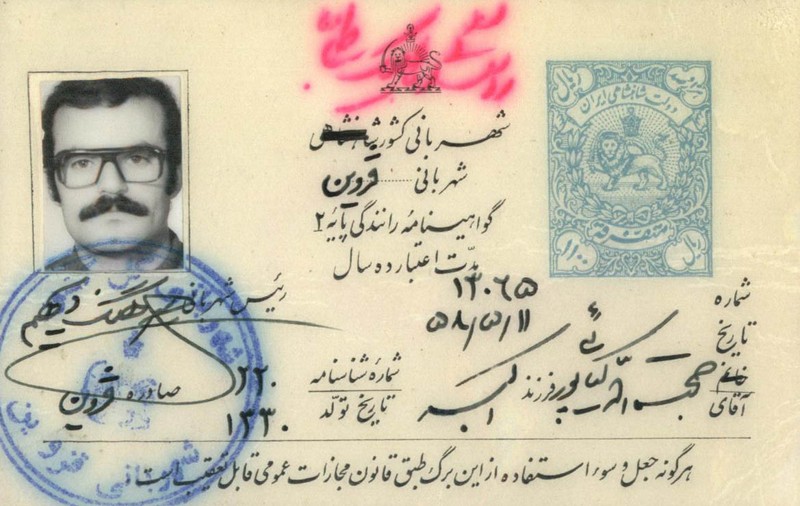 دولت شاهنشاهی ایران
متفرقه
ریال
۱۰۰ ریال
شهربانی کشور شاهنشاهی
شهربانی ..... قزوین
گواهینامه رانندگی پایه ۲
مدّت اعتبار ده سال
شماره ۱۳۰۶۵
تاریخ ۵۸/۵/۱۱
رئیس شهربانی سرهنگ
خانم
آقای حجت الله فرزند اکبر
شماره شناسنامه ۲۲۰ صادره قزوین
تاریخ تولّد ۱۳۳۰
هرگونه جعل و سوء استفاده از این برگ طبق قانون مجازات عمومی قابل تعقیب است